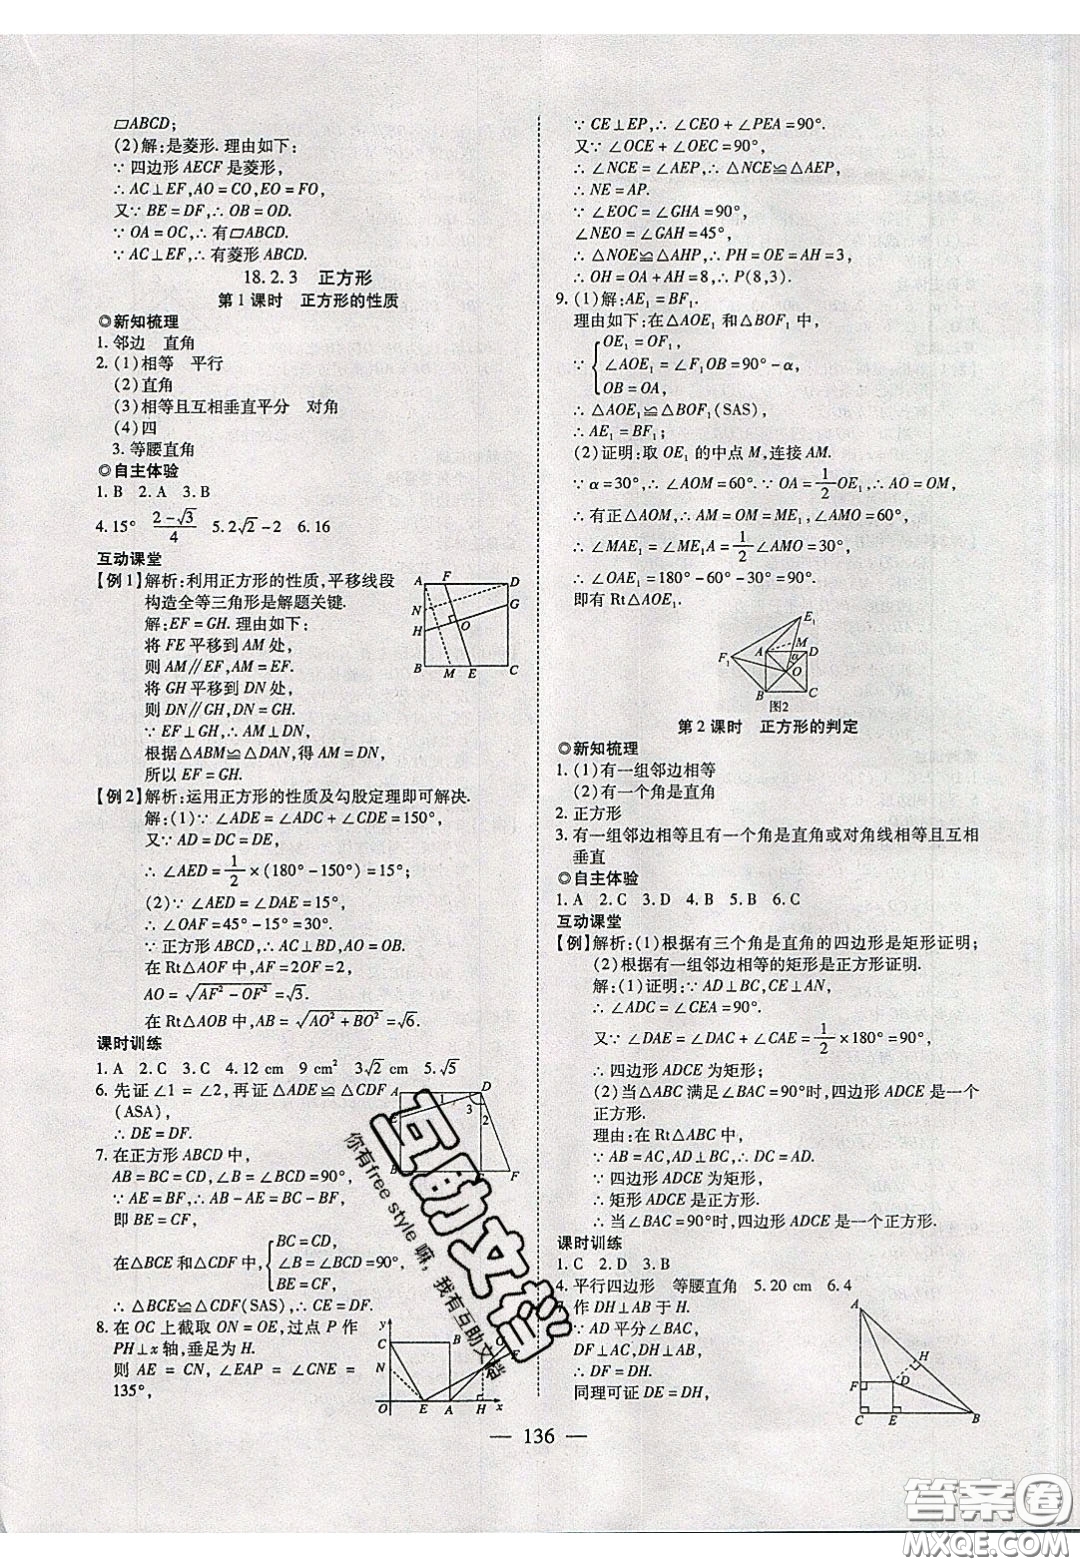 ▱ABCD;
(2)解:是菱形.理由如下:
∵四边形AECF是菱形,
∴AC⊥EF,AO=CO,EO=FO,
又∵BE=DF,∴OB=OD.
∵OA=OC,∴有▱ABCD.
∵AC⊥EF,∴有菱形ABCD.
18.2.3 正方形
第1课时 正方形的性质
◎新知梳理
1.邻边 直角
2.(1)相等 平行
(2)直角
(3)相等且互相垂直平分 对角
(4)四
3.等腰直角
◎自主体验
1.B 2.A 3.B
4.15° (2-√3)/4 5.2√2-2 6.16
互动课堂
【例1】解析:利用正方形的性质,平移线段
构造全等三角形是解题关键.
解:EF=GH.理由如下:
将FE平移到AM处,
则AM∥EF,AM=EF.
将GH平移到DN处,
则DN∥GH,DN=GH.
∵EF⊥GH,∴AM⊥DN,
根据△ABM≌△DAN,得AM=DN,
所以EF=GH.
A F D
N G
H O
B M E C
【例2】解析:运用正方形的性质及勾股定理即可解决.
解:(1)∵∠ADE=∠ADC+∠CDE=150°,
又∵AD=DC=DE,
∴∠AED=1/2×(180°-150°)=15°;
(2)∵∠AED=∠DAE=15°,
∴∠OAF=45°-15°=30°.
∵正方形ABCD,∴AC⊥BD,AO=BO.
在Rt△AOF中,AF=2OF=2,
AO=√(AF²-OF²)=√3.
在Rt△AOB中,AB=√(AO²+BO²)=√6.
课时训练
1.A 2.C 3.C 4.12 cm 9 cm² 3√2 cm 5.√5
6.先证∠1=∠2,再证△ADE≌△CDF
(ASA),
∴DE=DF.
A D
1 3
2
F
7.在正方形ABCD中,
AB=BC=CD,∠B=∠BCD=90°.
∵AE=BF,∴AB-AE=BC-BF,
即BE=CF,
在△BCE和△CDF中,{BC=CD,
∠B=∠BCD=90°,
BE=CF,
∴△BCE≌△CDF(SAS),∴CE=DF.
8.在OC上截取ON=OE,过点P作
PH⊥x轴,垂足为H.
则AE=CN,∠EAP=∠CNE=
135°,
y
C B
N
O E A H x
∵CE⊥EP,∴∠CEO+∠PEA=90°.
又∵∠OCE+∠OEC=90°,
∴∠NCE=∠AEP,∴△NCE≌△AEP,
∴NE=AP.
∵∠EOC=∠GHA=90°,
∠NEO=∠GAH=45°,
∴△NOE≌△AHP,∴PH=OE=AH=3,
∴OH=OA+AH=8,∴P(8,3).
9.(1)解:AE₁=BF₁.
理由如下:在△AOE₁和△BOF₁中,
∵{OE₁=OF₁,
∠AOE₁=∠F₁OB=90°-α,
OB=OA,
∴△AOE₁≌△BOF₁(SAS),
∴AE₁=BF₁;
(2)证明:取OE₁的中点M,连接AM.
∵α=30°,∴∠AOM=60°.∵OA=1/2OE₁,∴AO=OM,
∴有正△AOM,∴AM=OM=ME₁,∠AMO=60°,
∴∠MAE₁=∠ME₁A=1/2∠AMO=30°,
∴∠OAE₁=180°-60°-30°=90°.
即有Rt△AOE₁.
E₁
A M D
F₁ α
O
B C
图2
第2课时 正方形的判定
◎新知梳理
1.(1)有一组邻边相等
(2)有一个角是直角
2.正方形
3.有一组邻边相等且有一个角是直角或对角线相等且互相
垂直
◎自主体验
1.A 2.C 3.D 4.B 5.B 6.C
互动课堂
【例】解析:(1)根据有三个角是直角的四边形是矩形证明;
(2)根据有一组邻边相等的矩形是正方形证明.
解:(1)证明:∵AD⊥BC,CE⊥AN,
∴∠ADC=∠CEA=90°.
又∵∠DAE=∠DAC+∠CAE=1/2×180°=90°,
∴四边形ADCE为矩形;
(2)当△ABC满足∠BAC=90°时,四边形ADCE是一个
正方形.
理由:在Rt△ABC中,
∵AB=AC,AD⊥BC,∴DC=AD.
∵四边形ADCE为矩形,
∴矩形ADCE是正方形.
∴当∠BAC=90°时,四边形ADCE是一个正方形.
课时训练
1.C 2.D 3.B
4.平行四边形 等腰直角 5.20 cm 6.4
作DH⊥AB于H.
∵AD平分∠BAC,
DF⊥AC,DH⊥AB,
∴DF=DH.
同理可证DE=DH,
A
H
F D
C E B
136
互助文档
你有free style嘛,我有互助文档
答案圈
MXQE.COM